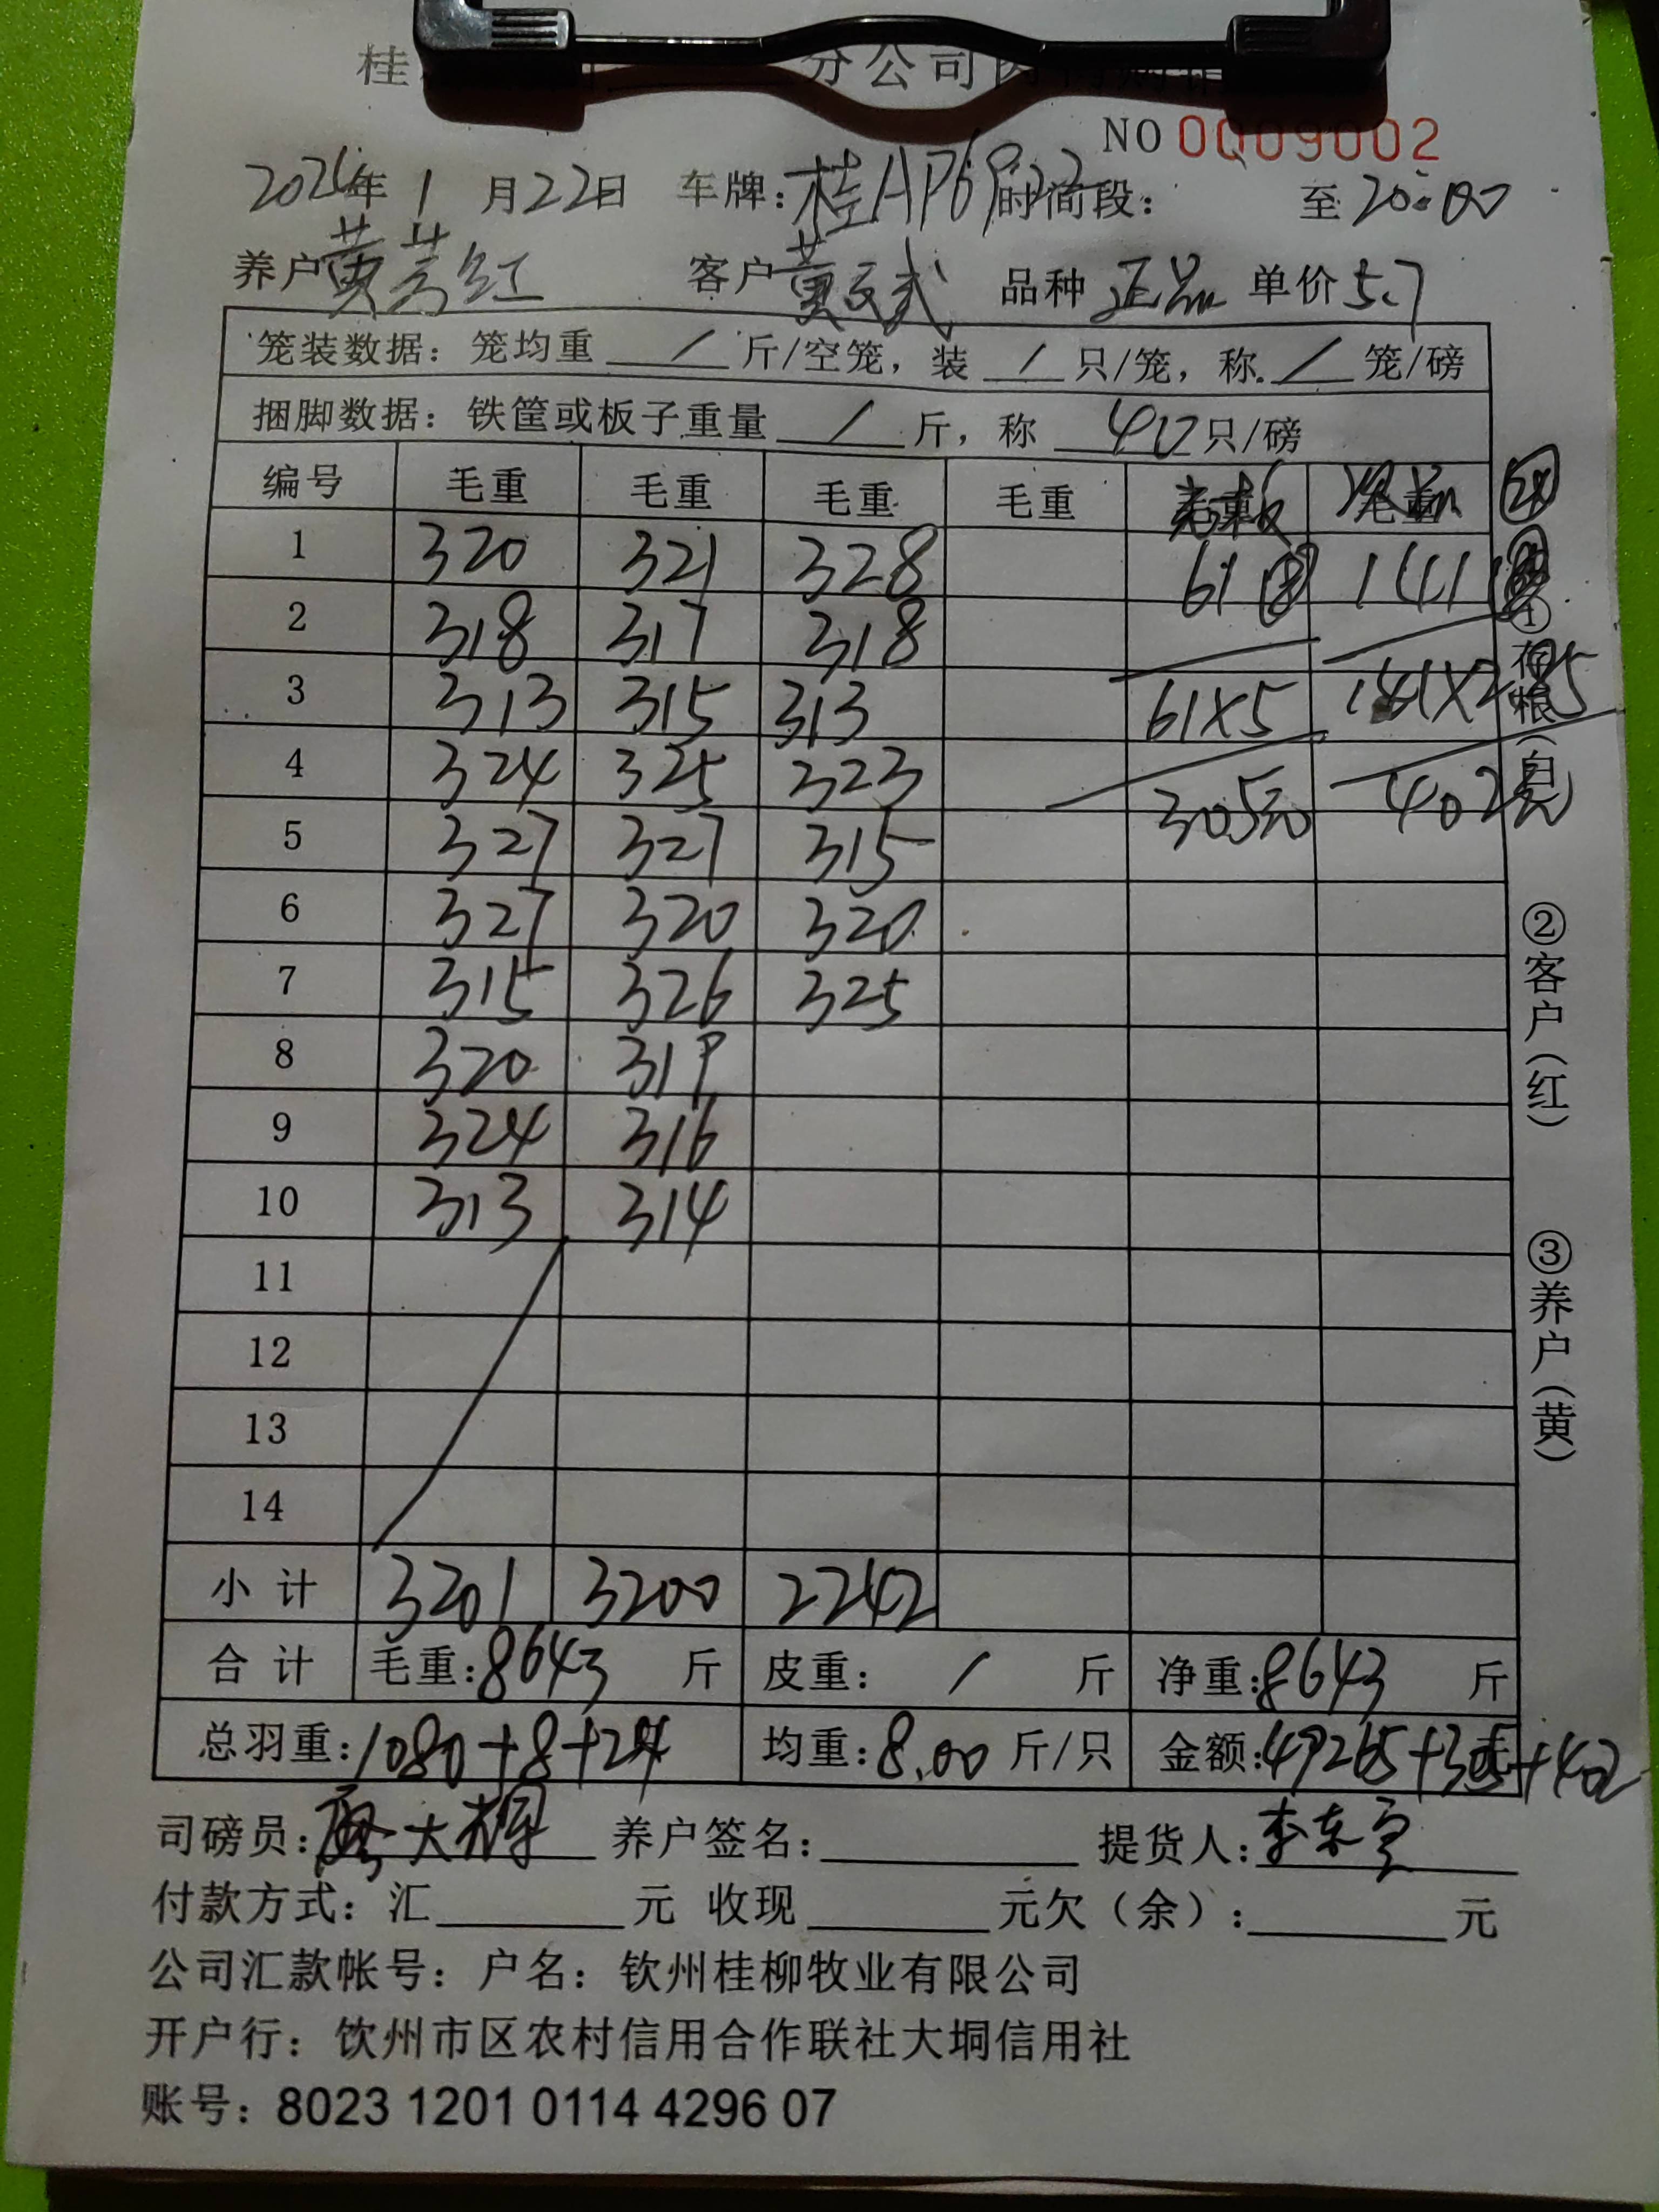 桂 分公司肉
NO 0009002
年 1 月 22 日 车牌: 桂AP6 时间段: 至 20:00
养户 黄 红 客户 黄 武 品种 正品 单价 5.7
笼装数据: 笼均重 / 斤/空笼, 装 / 只/笼, 称 / 笼/磅
捆脚数据: 铁筐或板子重量 / 斤, 称 40 只/磅
编号 毛重 毛重 毛重 毛重
1 320 321 328 61 ⑧ 141
2 318 317 318
3 313 315 313 61×5 141×2.85
4 324 325 323 305元 402元
5 327 327 315
6 327 320 320
7 315 326 325
8 320 319
9 324 316
10 313 314
11
12
13
14
小计 3201 3200 2242
合计 毛重: 8643 斤 皮重: / 斤 净重: 8643 斤
总羽重: 1080+8+24 均重: 8.00 斤/只 金额: 49265+305+402
司磅员: 大 养户签名: 提货人: 李东
付款方式: 汇 元 收现 元欠(余): 元
公司汇款帐号: 户名: 钦州桂柳牧业有限公司
开户行: 钦州市区农村信用合作联社大垌信用社
账号: 8023 1201 0114 4296 07
①存根(白)
②客户(红)
③养户(黄)